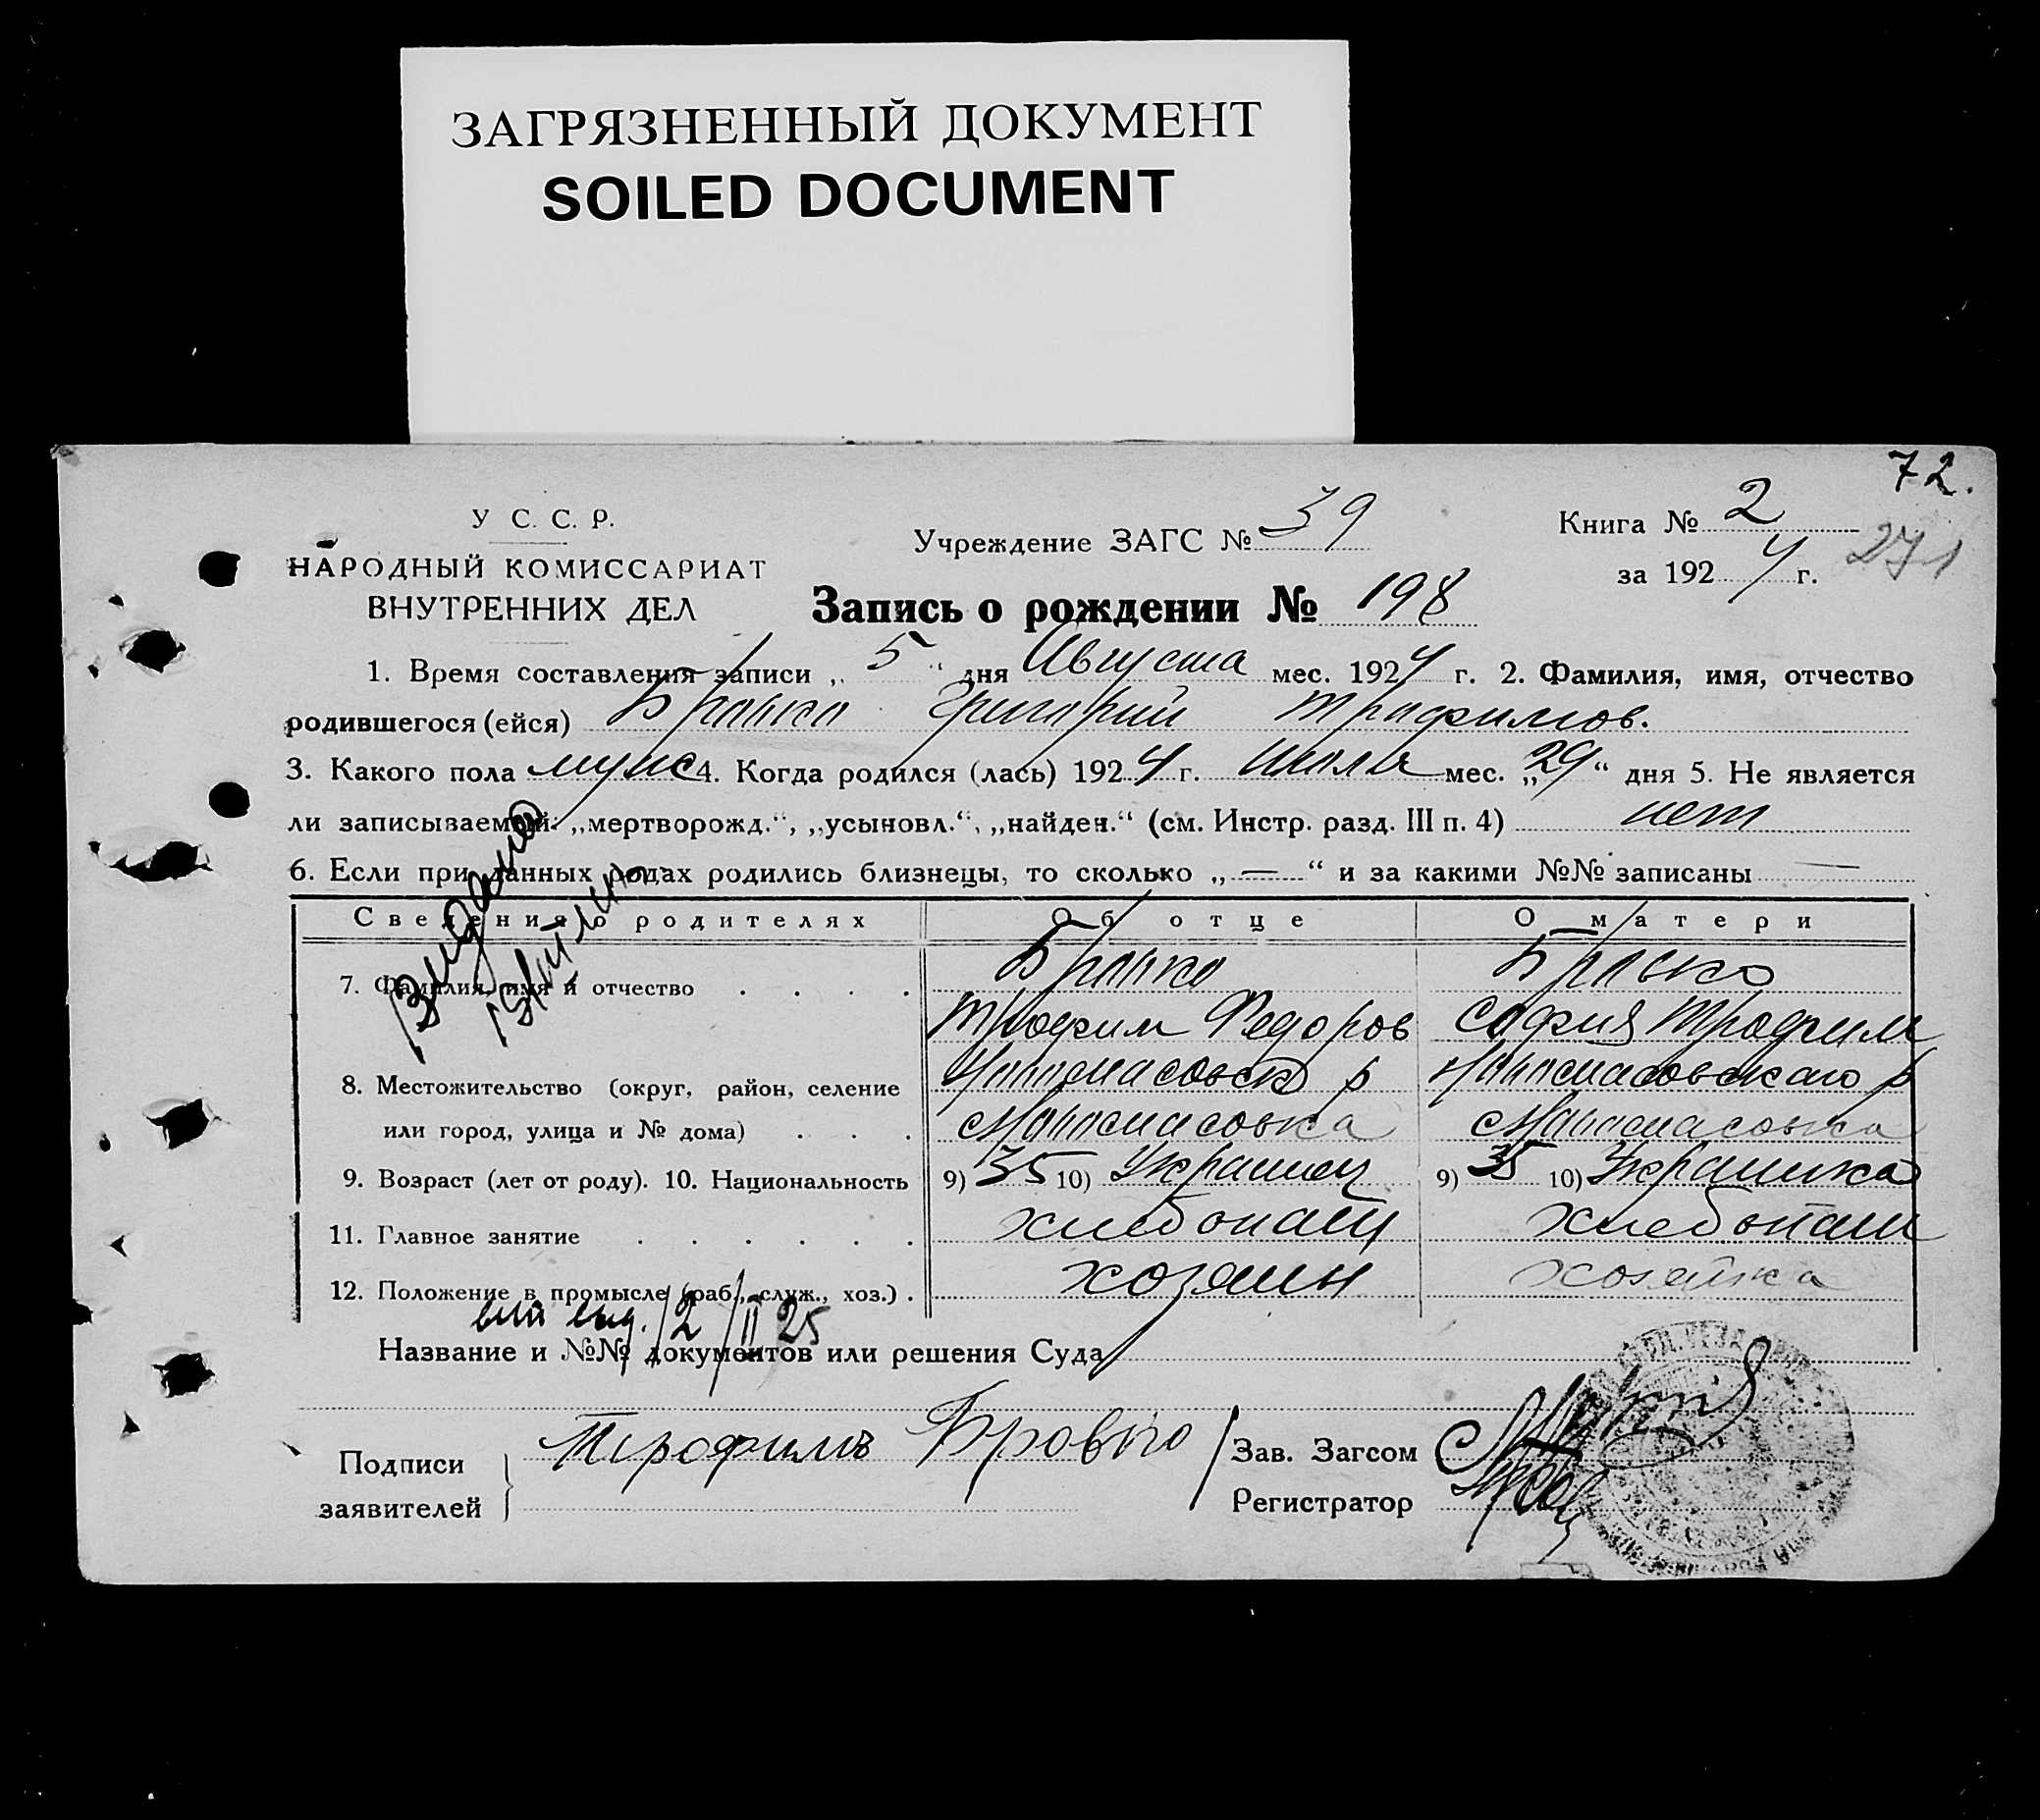 ЗАГРЯЗНЕННЫЙ ДОКУМЕНТ
SOILED DOCUMENT
72.
У С. С. Р.
НАРОДНЫЙ КОМИССАРИАТ
ВНУТРЕННИХ ДЕЛ
Учреждение ЗАГС № 39
Книга № 2
за 1924 г. 271
Запись о рождении № 198
1. Время составления записи „ 5 “ дня Августа мес. 1924 г. 2. Фамилия, имя, отчество
родившегося (ейся) Бровко Григорий Трофимов.
3. Какого пола муж 4. Когда родился (лась) 1924 г. июля мес. „29“ дня 5. Не является
ли записываемый: „мертворожд.“, „усыновл.“, „найден.“ (см. Инстр. разд. III п. 4) нет
6. Если при данных родах родились близнецы, то сколько „ — “ и за какими №№ записаны —
Сведения о родителях Об отце О матери
7. Фамилия, имя и отчество Бровко Бровко
Трофим Федоров София Трофим
8. Местожительство (округ, район, селение
или город, улица и № дома)
9. Возраст (лет от роду). 10. Национальность 9) 35 10) Украинец 9) 35 10) Украинка
11. Главное занятие хлебопаш хлебопаш
12. Положение в промысле (раб., служ., хоз.) хозяин хозяйка
12/II 25
Название и №№ документов или решения Суда
Подписи
заявителей
Трофимъ Бровко
Зав. Загсом
Регистратор